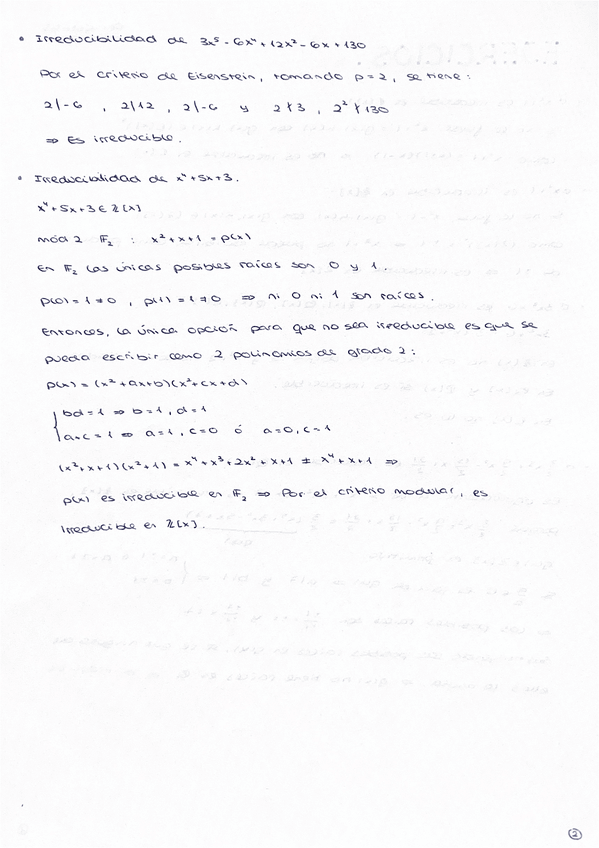 • Irreducibilidad de 3x⁵ - 6x⁴ + 12x² - 6x + 130
Por el criterio de Eisenstein, tomando p = 2, se tiene:
2|-6 , 2|12 , 2|-6 y 2∤3 , 2²∤130
⇒ Es irreducible.
• Irreducibilidad de x⁴ + 5x + 3.
x⁴ + 5x + 3 ∈ ℤ[x]
mód 2 𝔽₂ : x² + x + 1 = p(x)
En 𝔽₂ las únicas posibles raíces son 0 y 1.
p(0) = 1 ≠ 0 , p(1) = 1 ≠ 0 ⇒ ni 0 ni 1 son raíces.
Entonces, la única opción para que no sea irreducible es que se
pueda escribir como 2 polinomios de grado 2:
p(x) = (x² + ax + b)(x² + cx + d)
bd = 1 ⇒ b = 1 , d = 1
a + c = 1 ⇒ a = 1 , c = 0 ó a = 0, c = 1
(x² + x + 1)(x² + 1) = x⁴ + x³ + 2x² + x + 1 ≠ x⁴ + x + 1 ⇒
p(x) es irreducible en 𝔽₂ ⇒ Por el criterio modular, es
irreducible en ℤ[x].
2